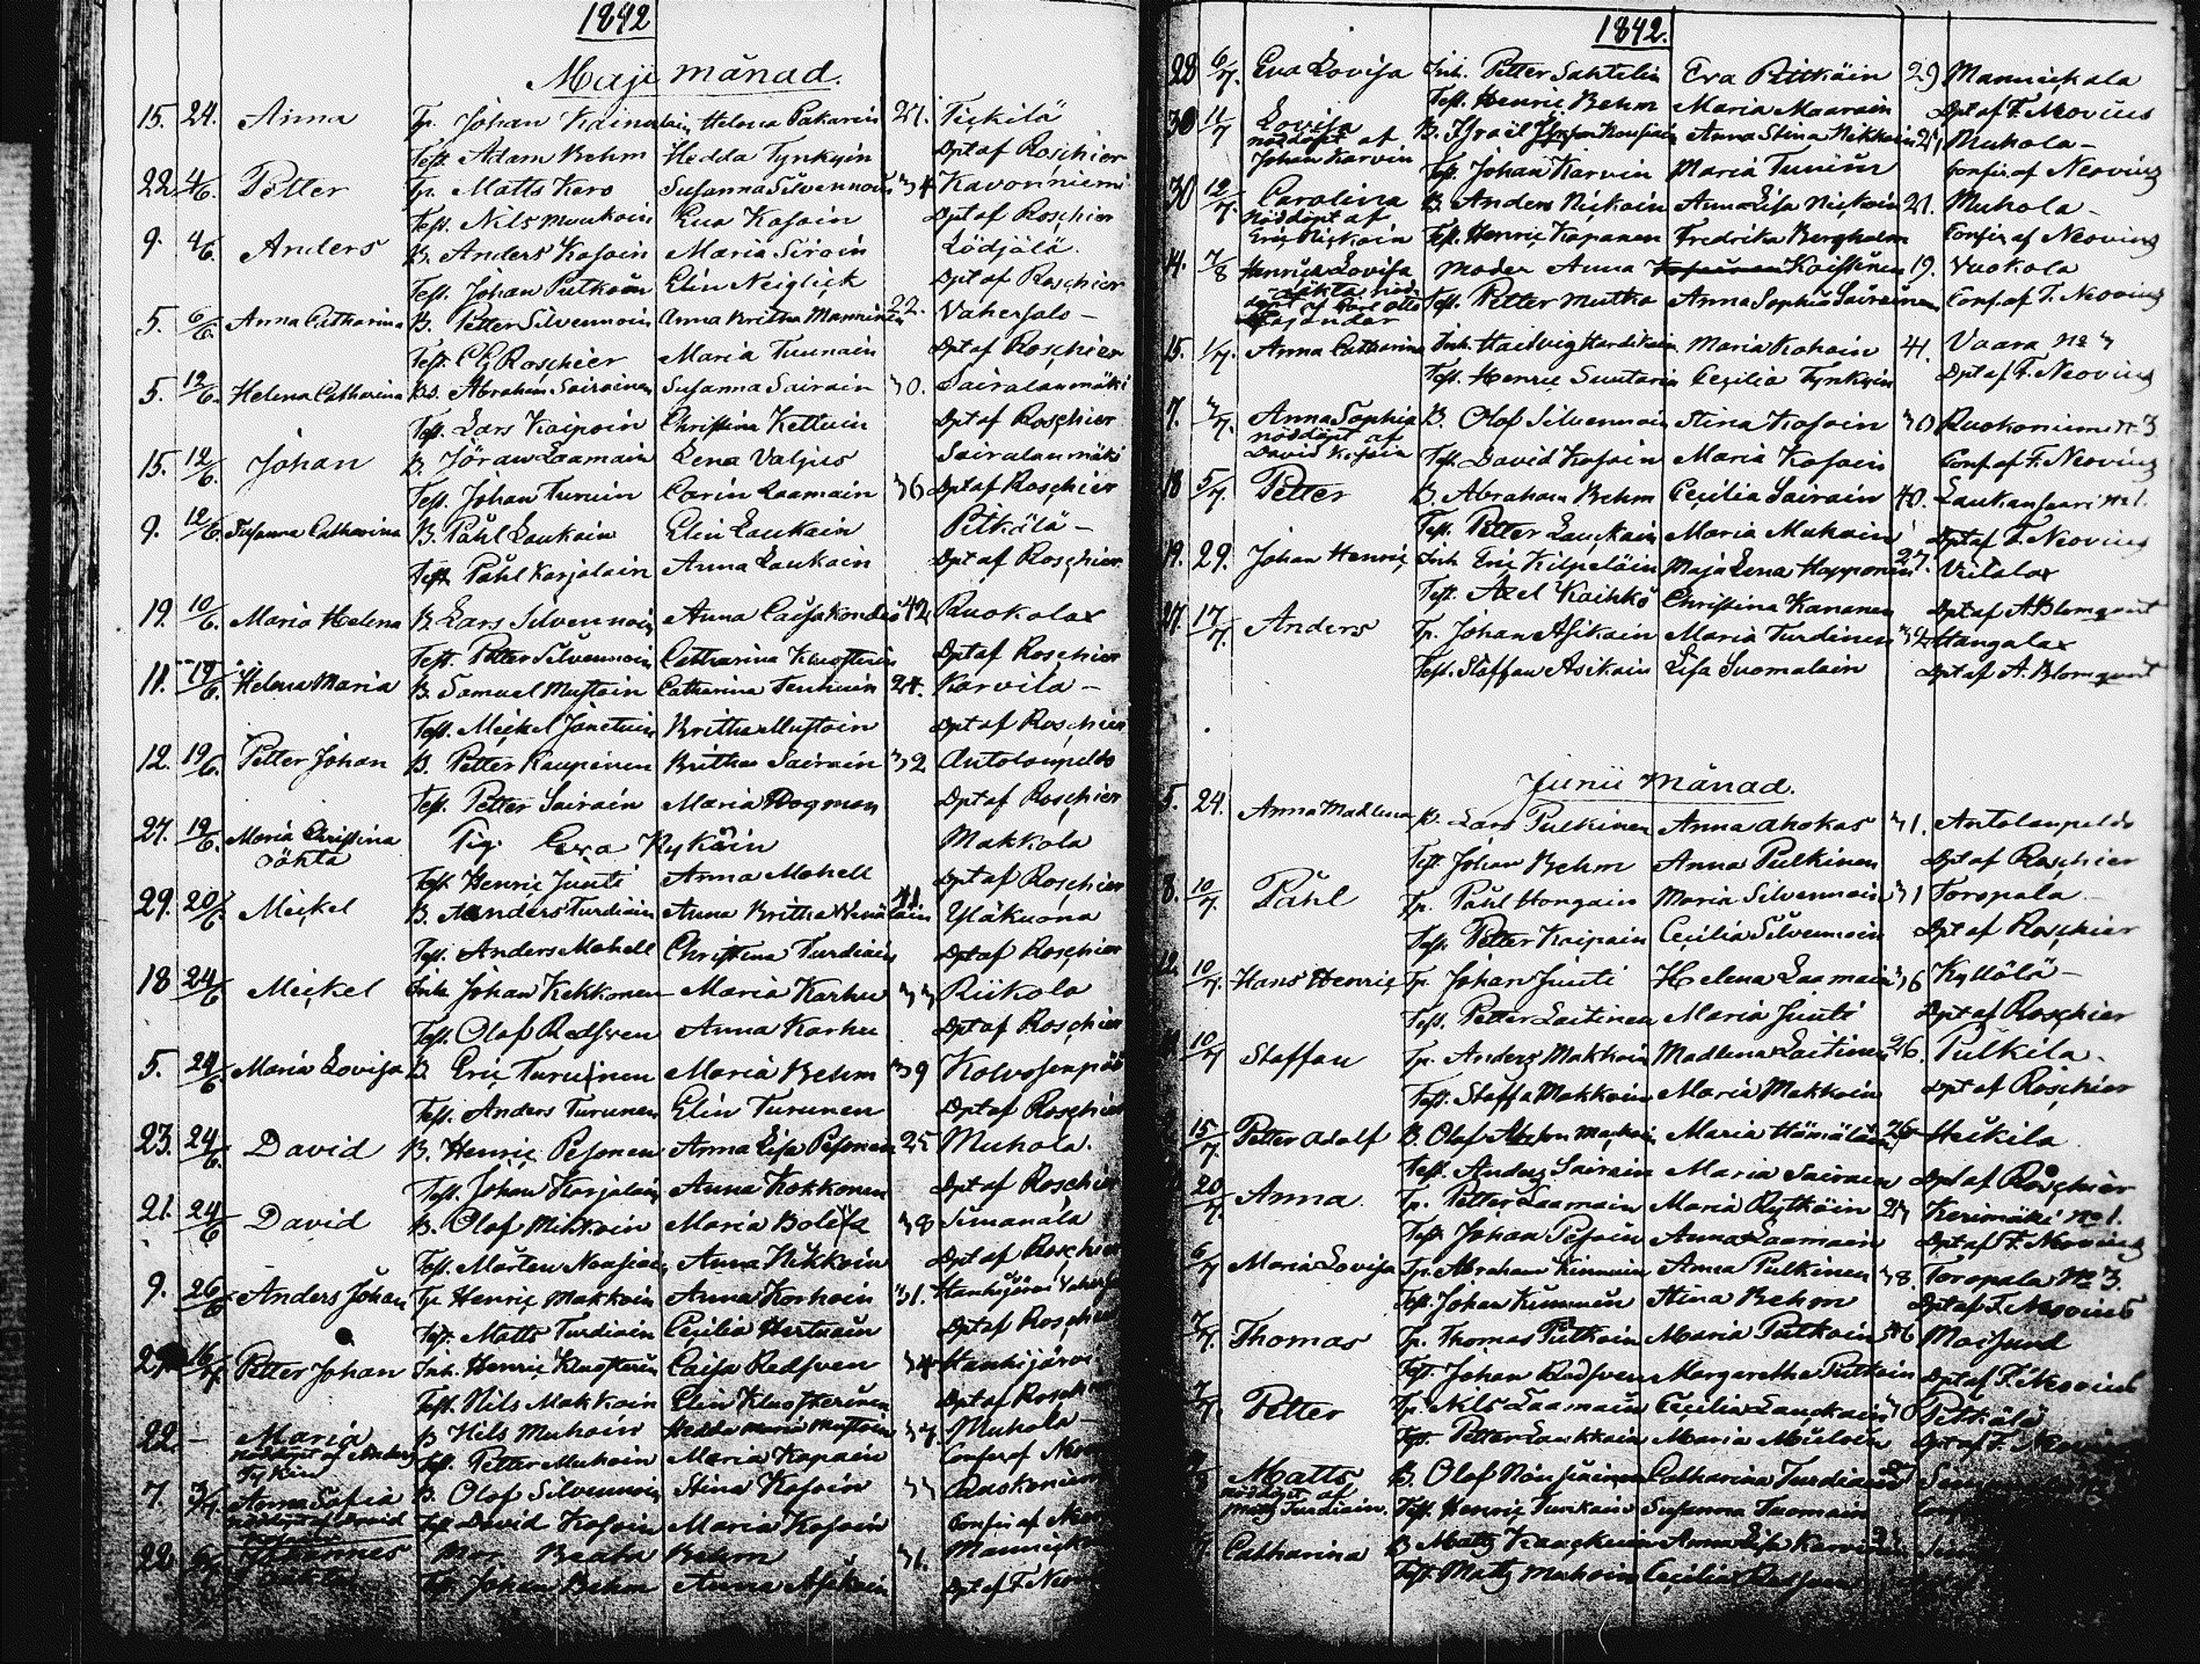 1842
Maji månad.
15. 24. Anna Tp. Johan Kainulain Helena Pakarin 27. Tiekilä
Test. Adam Behm Hedda Tynkyin Dpt af Roschier
22. 4/6. Petter Tp. Matts Kero Susanna Silvennoin 34 Kavonniemi
Test. Nils Muukoin Eva Kosoin Dpt af Roschier
9. 4/6. Anders B. Anders Kosoin Maria Siroin Lödjälä.
Test. Johan Putkoin Elin Neiglick Dpt af Roschier
5. 6/6. Anna Catharina B. Petter Silvennoin Anna Britha Manninen 22. Vahersalo –
Test. C G Roschier Maria Tuunain Dpt af Roschier
5. 12/6. Helena Catharina Bs. Abraham Sairainen Susanna Sairain 30. Sairalanmäki
Test. Lars Kaipoin Christina Kettuin Dpt af Roschier
15. 12/6. Johan B. Jöran Laamain Lena Valjus Sairalanmäki
Test. Johan Turuin Carin Laamain 36 Dpt af Roschier
9. 12/6. Susanna Catharina B. Påhl Laukain Elin Laukain Pitkälä –
Test. Påhl Karjalain Anna Laukain Dpt af Roschier
19. 10/6. Maria Helena B. Lars Silvennoin Anna Caisa 42 Ruokolax
Test. Petter Silvennoin Catharina Kluosterin Dpt af Roschier
11. 19/6. Helena Maria B. Samuel Mustoin Catharina Tenhuin 24. Karvila –
Test. Mickel Jänetuin Britha Mustoin Dpt af Roschier
12. 19/6. Petter Johan B. Petter Kaupinen Britha Sairain 32 Antolanpeldo
Test. Petter Sairain Maria Dogman Dpt af Roschier
27. 19/6. Maria Christina Tig. Eva Kykäin Makkola
oäkta
Test. Henric Juuti Anna Mahell Dpt af Roschier
29. 20/6 Mickel B. Anders Turdiain Anna Britha 41. Yläkuona
Test. Anders Mahell Christina Turdiain Dpt af Roschier
18 24/6 Mickel Inh. Johan Kekkonen Maria Karhu 33 Riikola
Test. Olof Redsven Anna Karhu Dpt af Roschier
5. 24/6 Maria Lovisa B. Eric Turuinen Maria Behm 39
Test. Anders Turunen Elin Turunen Dpt af Roschier
23. 24/6. David B. Henric Pesonen Anna Lisa Pesonen 25 Muhola.
Test. Johan Karjalain Anna Kokkonen Dpt af Roschier
21. 24/6 David B. Olof Mikkoin Maria 38 Simanala
Test. Mårten Nousiain Anna Nikkoin Dpt af Roschier
9. 26/6 Anders Johan Tp. Henric Makkoin Anna Korhoin 31. Hanhijärvi
Test. Matts Turdiain Cecilia Hertuain Dpt af Roschier
29 16/7 Petter Johan Inh. Henric Kluosterin Caisa Redsven 34 Hanhijärvi
Test. Nils Makkoin Elin Kluosterinen Dpt af Roschier
22. – Maria B. Nils Muhoin Hedda Maria Mustoin Muhola –
nöddöpt af Anders Test. Petter Muhoin Maria Kapain
7. 3/7. Anna Sofia B. Olof Silvennoin Stina Kosoin 33 Ruokoniemi
nöddöpt af David Test. David Kosoin Maria Kosoin
22 Johannes Mor. Beata Behm 31.
oäkta Test. Johan Behm Anna Asikain Dpt af F. Neov
1842.
28 6/7. Eva Lovisa Inh. Petter Sahtelin Eva Pitkäin 29 Mannickala
Test. Henric Behm Maria Maarain Dpt af F. Neovius
30 11/7 Lovisa B. Israël Kousiain Anna Stina Nikkoin 21 Muhola –
nöddöpt af
Johan Karvin Test. Johan Karvin Maria Tuniin Confir. af Neovius
30 12/7. Carolina B. Anders Nickoin Anna Lisa Nickoin 21. Muhola –
Nöddöpt af
Eric Nickoin Test. Henric Kapanen Fredrika Bergholm Confir af Neovius
14. 7/8 Henrica Lovisa Moder Anna Koistinen 19. Vuokola
oäkta nöd-
döpt af Carl Otto Test. Petter Mutka Anna Sophia Sairainen Conf. af F. Neovius
Cajander
15. 1/7. Anna Catharina Inh. Hailvig Hardikain Maria Kohoin 41. Vaara No 7
Test. Henric Suutarin Cecilia Tynkyin Dpt af F. Neovius
7. 3/7. Anna Sophia B. Olof Silvennoin Stina Kosoin 30 Ruokoniemi N. 3.
nöddöpt af
David Kosoin Test. David Kosoin Maria Kosoin Conf. af F. Neovius
18 5/7. Petter B. Abraham Behm Cecilia Sairain 40. Laukansaari No 1.
Test. Petter Lauckain Maria Muhoin Dpt af F. Neovius
19. 29. Johan Henric Inh. Eric Kilpeläin Maja Lena Happonen 27. Vritalax
Test. Axel Kaihko Christina Kananen Dpt af A. Blomqvist
27. 17/7. Anders Tp. Johan Asikain Maria Turdinen Hangalax
Test. Staffan Asikain Lisa Suomalain Dpt af A. Blomqvist
Junii Månad.
5. 24. Anna Madlena B. Lars Pulkinen Anna Ahokas 31. Antolanpeldo
Test. Johan Behm Anna Pulkinen Dpt af Roschier
8. 10/7. Påhl Tp. Påhl Hongain Maria Silvennoin 31 Toropala –
Test. Petter Kaipain Cecilia Silvennoin Dpt af Roschier
12. 10/7. Hans Henric Tp. Johan Juuti Helena Laamain 36 Kyllölä –
Test. Petter Laitinen Maria Juuti Dpt af Roschier
10/7 Staffan Tp. Anders Makkoin Madlena Laitinen 26. Pulkila.
Test. Staffa Makkoin Maria Makkoin Dpt af Roschier
15/7. Petter Adolf B. Olof Maria Hämäläin 26 Heikila
Test. Anders Sairain Maria Sairain Dpt af Roschier
20/7. Anna Tp. Petter Laamain Maria Rytköin Kerimäki No 1.
Test. Johan Pesoin Anna Laamain Dpt af F. Neovius
6/7 Maria Lovisa Tp. Abraham Kinnuin Anna Pulkinen 38. Toropala No 3.
Test. Johan Kinnunen Stina Behm Dpt af F. Neovius
7/7. Thomas Tp. Thomas Putkoin Maria Putkoin Moisund
Test. Johan Rodsven Margaretha Putkoin Dpt af F. Neovius
7/7. Petter Tp. Nils Laamain Cecilia Lauckain Pitkälä
Test. Petter Laukkain Maria Dpt af F.
Matts B. Olof Nousiainen Catharina Turdiain
nöddöpt af
Matts Turdiain. Test. Henric Turdiain Susanna Tuomain
Catharina B Matts Anna Lisa
Test. Matts Muhoin Cecilia